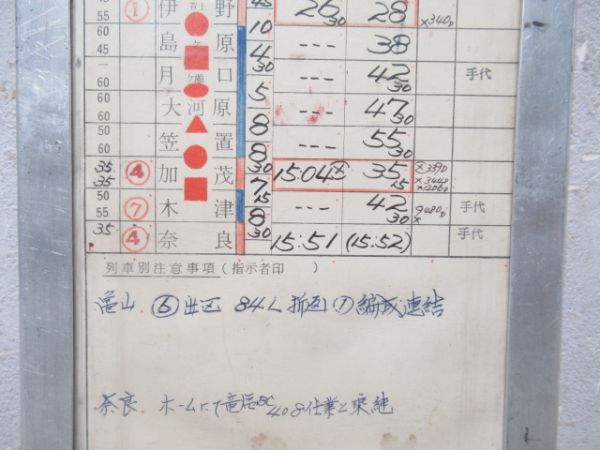 55 ① 伊 野 45 26 30 28 ×340D
60 45 島 ケ 原 10 --- 38
60 月 ケ瀬 口 4 30 --- 42 30 手代
60 大 河 原 5 --- 47 30
60 笠 置 8 --- 55 30
35 35 ④ 加 茂 8 30 15:04 35 15
50 55 ⑦ 木 津 7 15 --- 42 30 手代
35 ④ 奈 良 8 30 15:51 (15:52) 手代
列車別注意事項(指示者印 )
亀山 ⑥出区 84L 折返 ⑦編成連結
奈良 ホームにて 408仕業と乗継